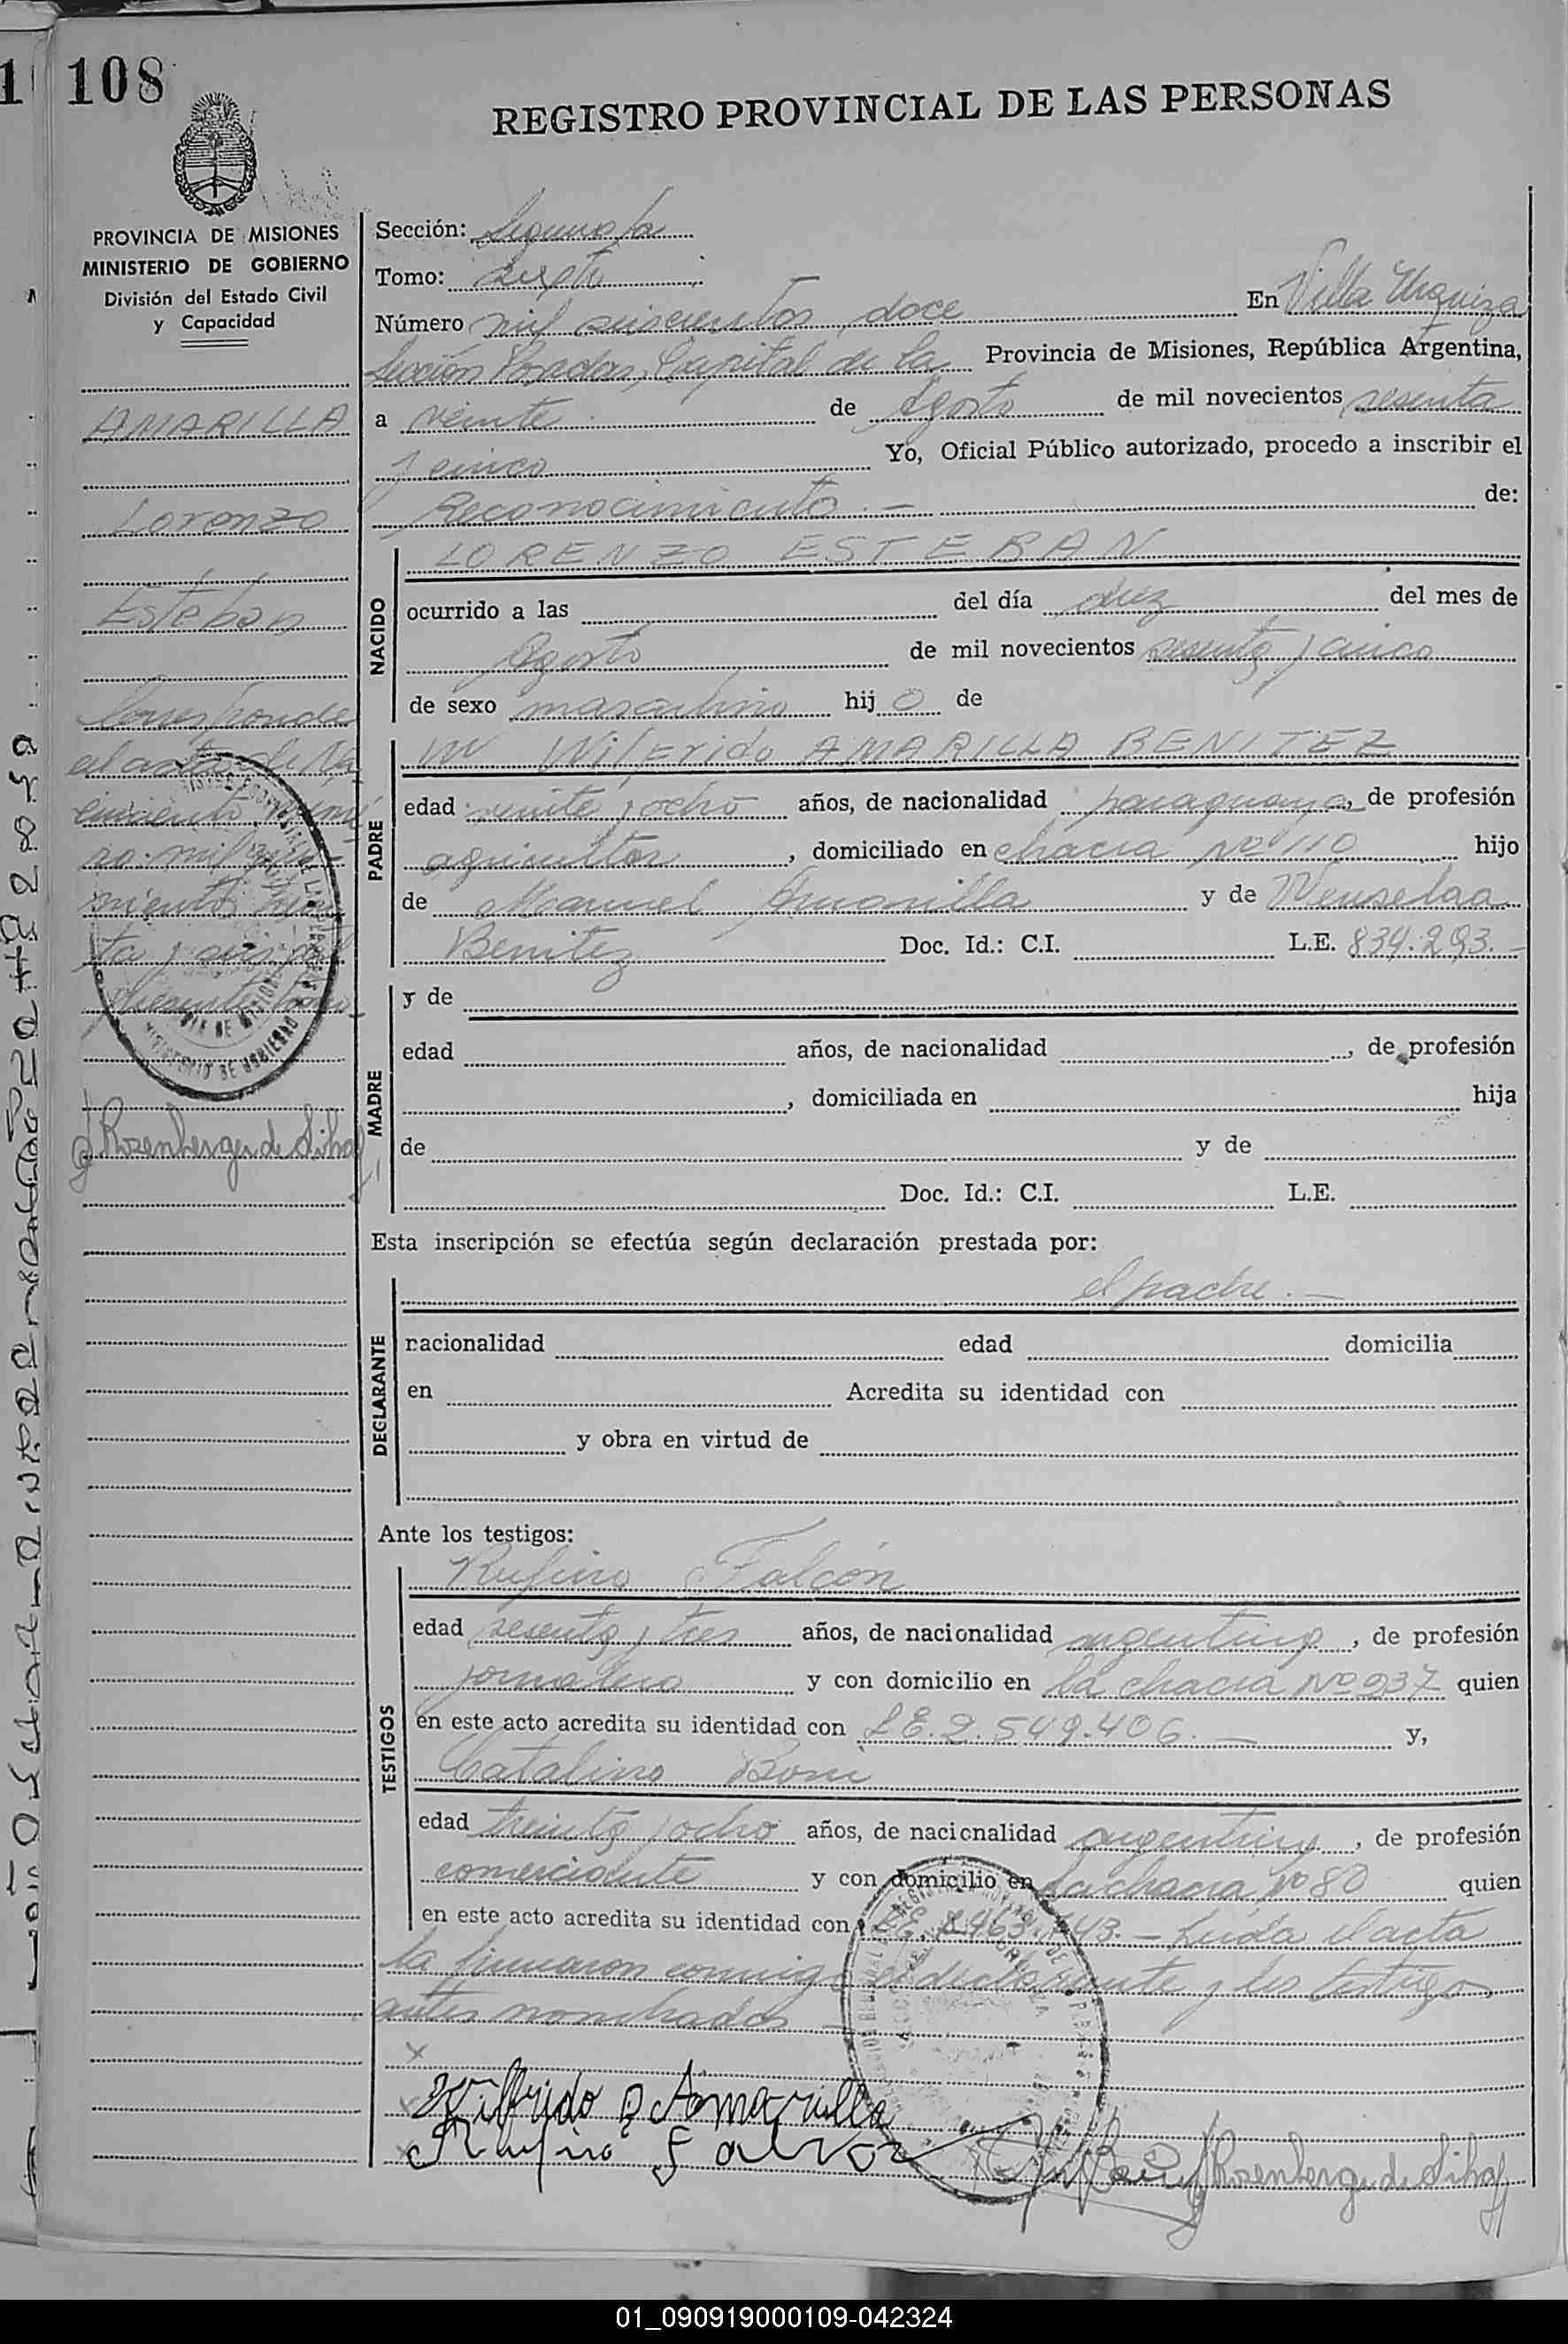 108
REGISTRO PROVINCIAL DE LAS PERSONAS
PROVINCIA DE MISIONES
MINISTERIO DE GOBIERNO
División del Estado Civil
y Capacidad
AMARILLA
Lorenzo
Esteban
Corresponde
al acta de Na
cimiento núme
ro mil
ta y seis
J Rosenberger de Silva
Sección: Segunda
Tomo: sexto
Número mil seiscientos doce En Villa Urquiza
Sección Posadas, Capital de la Provincia de Misiones, República Argentina,
a veinte de Agosto de mil novecientos sesenta
y cinco Yo, Oficial Público autorizado, procedo a inscribir el
Reconocimiento.- de:
NACIDO
LORENZO ESTEBAN
ocurrido a las del día diez del mes de
Agosto de mil novecientos sesenta y cinco
de sexo masculino hijo de
PADRE
Wilfrido AMARILLA BENITEZ
edad veinte y ocho años, de nacionalidad paraguaya, de profesión
agricultor, domiciliado en chacra Nº 110 hijo
de Manuel Amarilla y de Wenselaa
Benitez Doc. Id.: C.I. L.E. 834.293.-
MADRE
y de
edad años, de nacionalidad , de profesión
, domiciliada en hija
de y de
Doc. Id.: C.I. L.E.
Esta inscripción se efectúa según declaración prestada por:
el padre.-
DECLARANTE
nacionalidad edad domicilia
en Acredita su identidad con
y obra en virtud de
Ante los testigos:
TESTIGOS
Rufino Falcón
edad sesenta y tres años, de nacionalidad argentina, de profesión
jornalero y con domicilio en la chacra Nº 237 quien
en este acto acredita su identidad con L.E. 2.549.406.- y,
Catalino Boni
edad treinta y ocho años, de nacionalidad argentina, de profesión
comerciante y con domicilio en la chacra Nº 80 quien
en este acto acredita su identidad con L.E. - Leida el acta
la firmaron conmigo el declarante y los testigos
antes nombrados
Wilfrido A Amarilla
Rufino Falcon
J Rosenberger de Silva
01_090919000109-042324